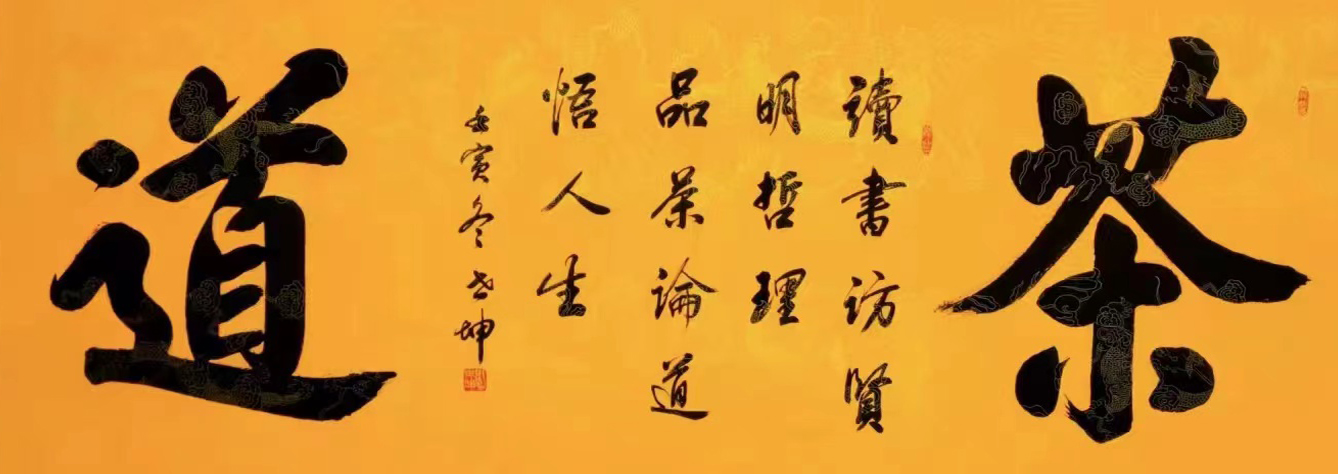 茶
讀書訪賢
明哲理
品茶論道
悟人生
壬寅冬志坤
道